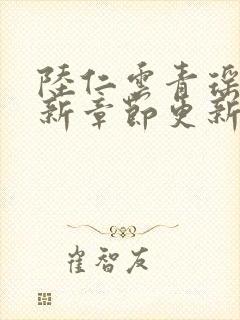 陸仁雲青瑤
新章節更新
崔智友